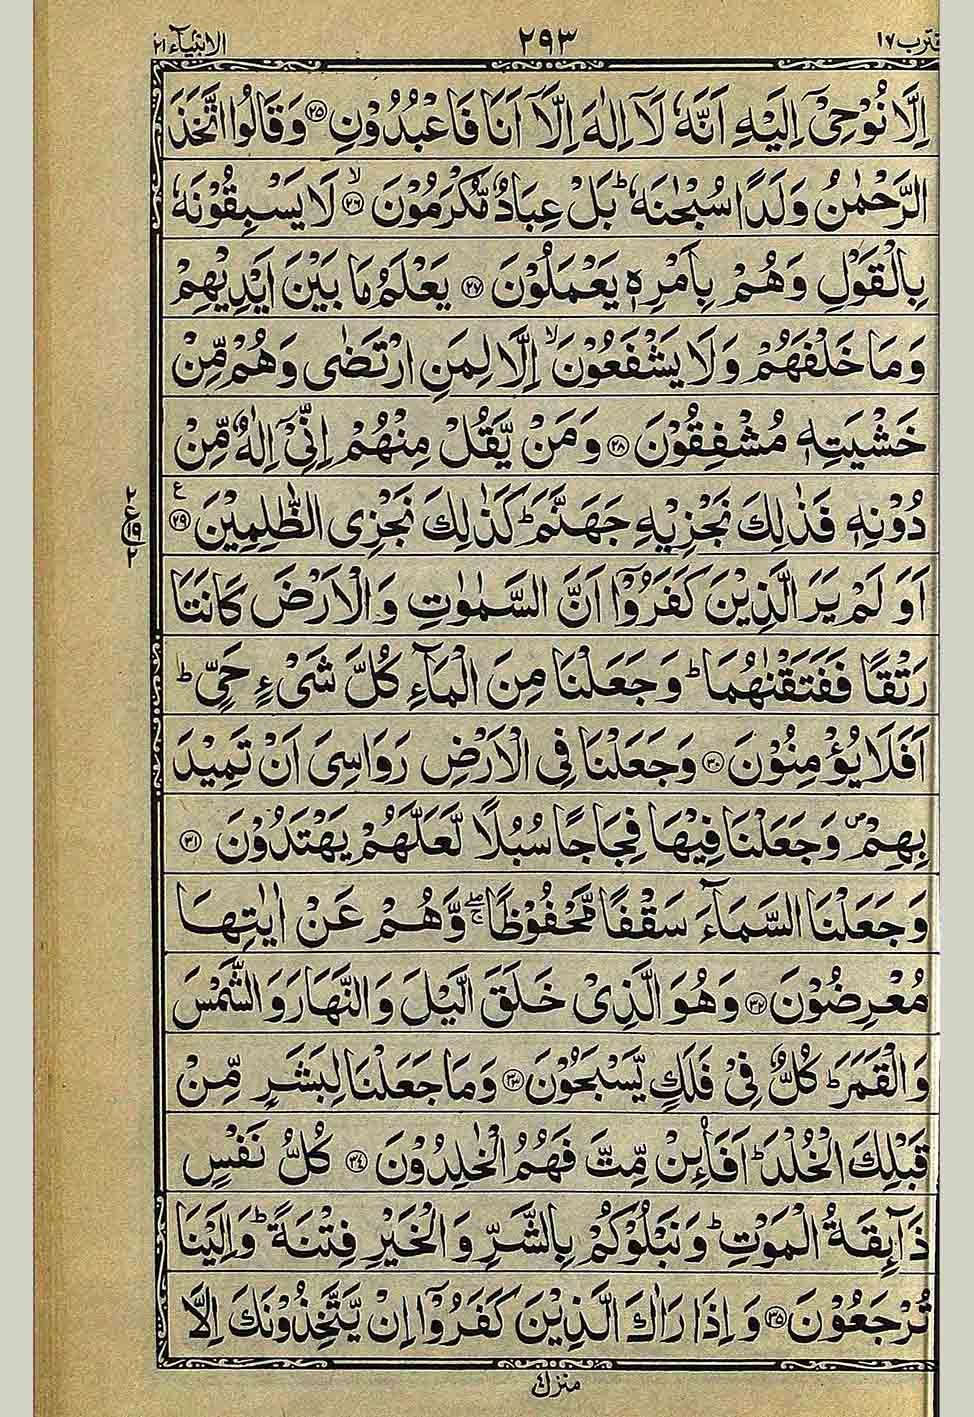 اقترب ١٧ ٢٩٣ الانبيآء ٢١
اِلَّا نُوْحِىْٓ اِلَيْهِ اَنَّهٗ لَآ اِلٰهَ اِلَّآ اَنَا فَاعْبُدُوْنِ ﴿٢٥﴾ وَ قَالُوا اتَّخَذَ
الرَّحْمٰنُ وَلَدًا سُبْحٰنَهٗ ؕ بَلْ عِبَادٌ مُّكْرَمُوْنَ ۙ﴿٢٦﴾ لَا يَسْبِقُوْنَهٗ
بِالْقَوْلِ وَ هُمْ بِاَمْرِهٖ يَعْمَلُوْنَ ﴿٢٧﴾ يَعْلَمُ مَا بَيْنَ اَيْدِيْهِمْ
وَ مَا خَلْفَهُمْ وَ لَا يَشْفَعُوْنَ ۙ اِلَّا لِمَنِ ارْتَضٰى وَ هُمْ مِّنْ
خَشْيَتِهٖ مُشْفِقُوْنَ ﴿٢٨﴾ وَ مَنْ يَّقُلْ مِنْهُمْ اِنِّىْٓ اِلٰهٌ مِّنْ
دُوْنِهٖ فَذٰلِكَ نَجْزِيْهِ جَهَنَّمَ ؕ كَذٰلِكَ نَجْزِى الظّٰلِمِيْنَ ﴿٢٩﴾ ع
٢ ع ١٩ ٢
اَوَ لَمْ يَرَ الَّذِيْنَ كَفَرُوْٓا اَنَّ السَّمٰوٰتِ وَ الْاَرْضَ كَانَتَا
رَتْقًا فَفَتَقْنٰهُمَا ؕ وَ جَعَلْنَا مِنَ الْمَآءِ كُلَّ شَىْءٍ حَىٍّ ؕ
اَفَلَا يُؤْمِنُوْنَ ﴿٣٠﴾ وَ جَعَلْنَا فِى الْاَرْضِ رَوَاسِىَ اَنْ تَمِيْدَ
بِهِمْ ۪ وَ جَعَلْنَا فِيْهَا فِجَاجًا سُبُلًا لَّعَلَّهُمْ يَهْتَدُوْنَ ﴿٣١﴾
وَ جَعَلْنَا السَّمَآءَ سَقْفًا مَّحْفُوْظًا ۖۚ وَّ هُمْ عَنْ اٰيٰتِهَا
مُعْرِضُوْنَ ﴿٣٢﴾ وَ هُوَ الَّذِىْ خَلَقَ الَّيْلَ وَ النَّهَارَ وَ الشَّمْسَ
وَ الْقَمَرَ ؕ كُلٌّ فِىْ فَلَكٍ يَّسْبَحُوْنَ ﴿٣٣﴾ وَ مَا جَعَلْنَا لِبَشَرٍ مِّنْ
قَبْلِكَ الْخُلْدَ ؕ اَفَا۠ئِنْ مِّتَّ فَهُمُ الْخٰلِدُوْنَ ﴿٣٤﴾ كُلُّ نَفْسٍ
ذَآئِقَةُ الْمَوْتِ ؕ وَ نَبْلُوْكُمْ بِالشَّرِّ وَ الْخَيْرِ فِتْنَةً ؕ وَ اِلَيْنَا
تُرْجَعُوْنَ ﴿٣٥﴾ وَ اِذَا رَاٰكَ الَّذِيْنَ كَفَرُوْٓا اِنْ يَّتَّخِذُوْنَكَ اِلَّا
منزل ٤